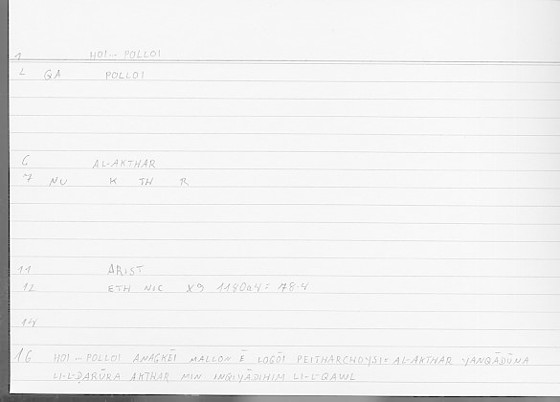 1 HOI - POLLOI
2 QA POLLOI
6 AL-AKTHAR
7 NU K TH R
11 ARIST
12 ETH NIC X9 1180a4 = 78.4
14
16 HOI - POLLOI ANAGKĒI MALLON Ē LOGŌI PEITHARCHOYSI = AL-AKTHAR YANQĀDŪNA
LI-L-ḌARŪRA AKTHAR MIN INQIYĀDIHIM LI-L-QAWL